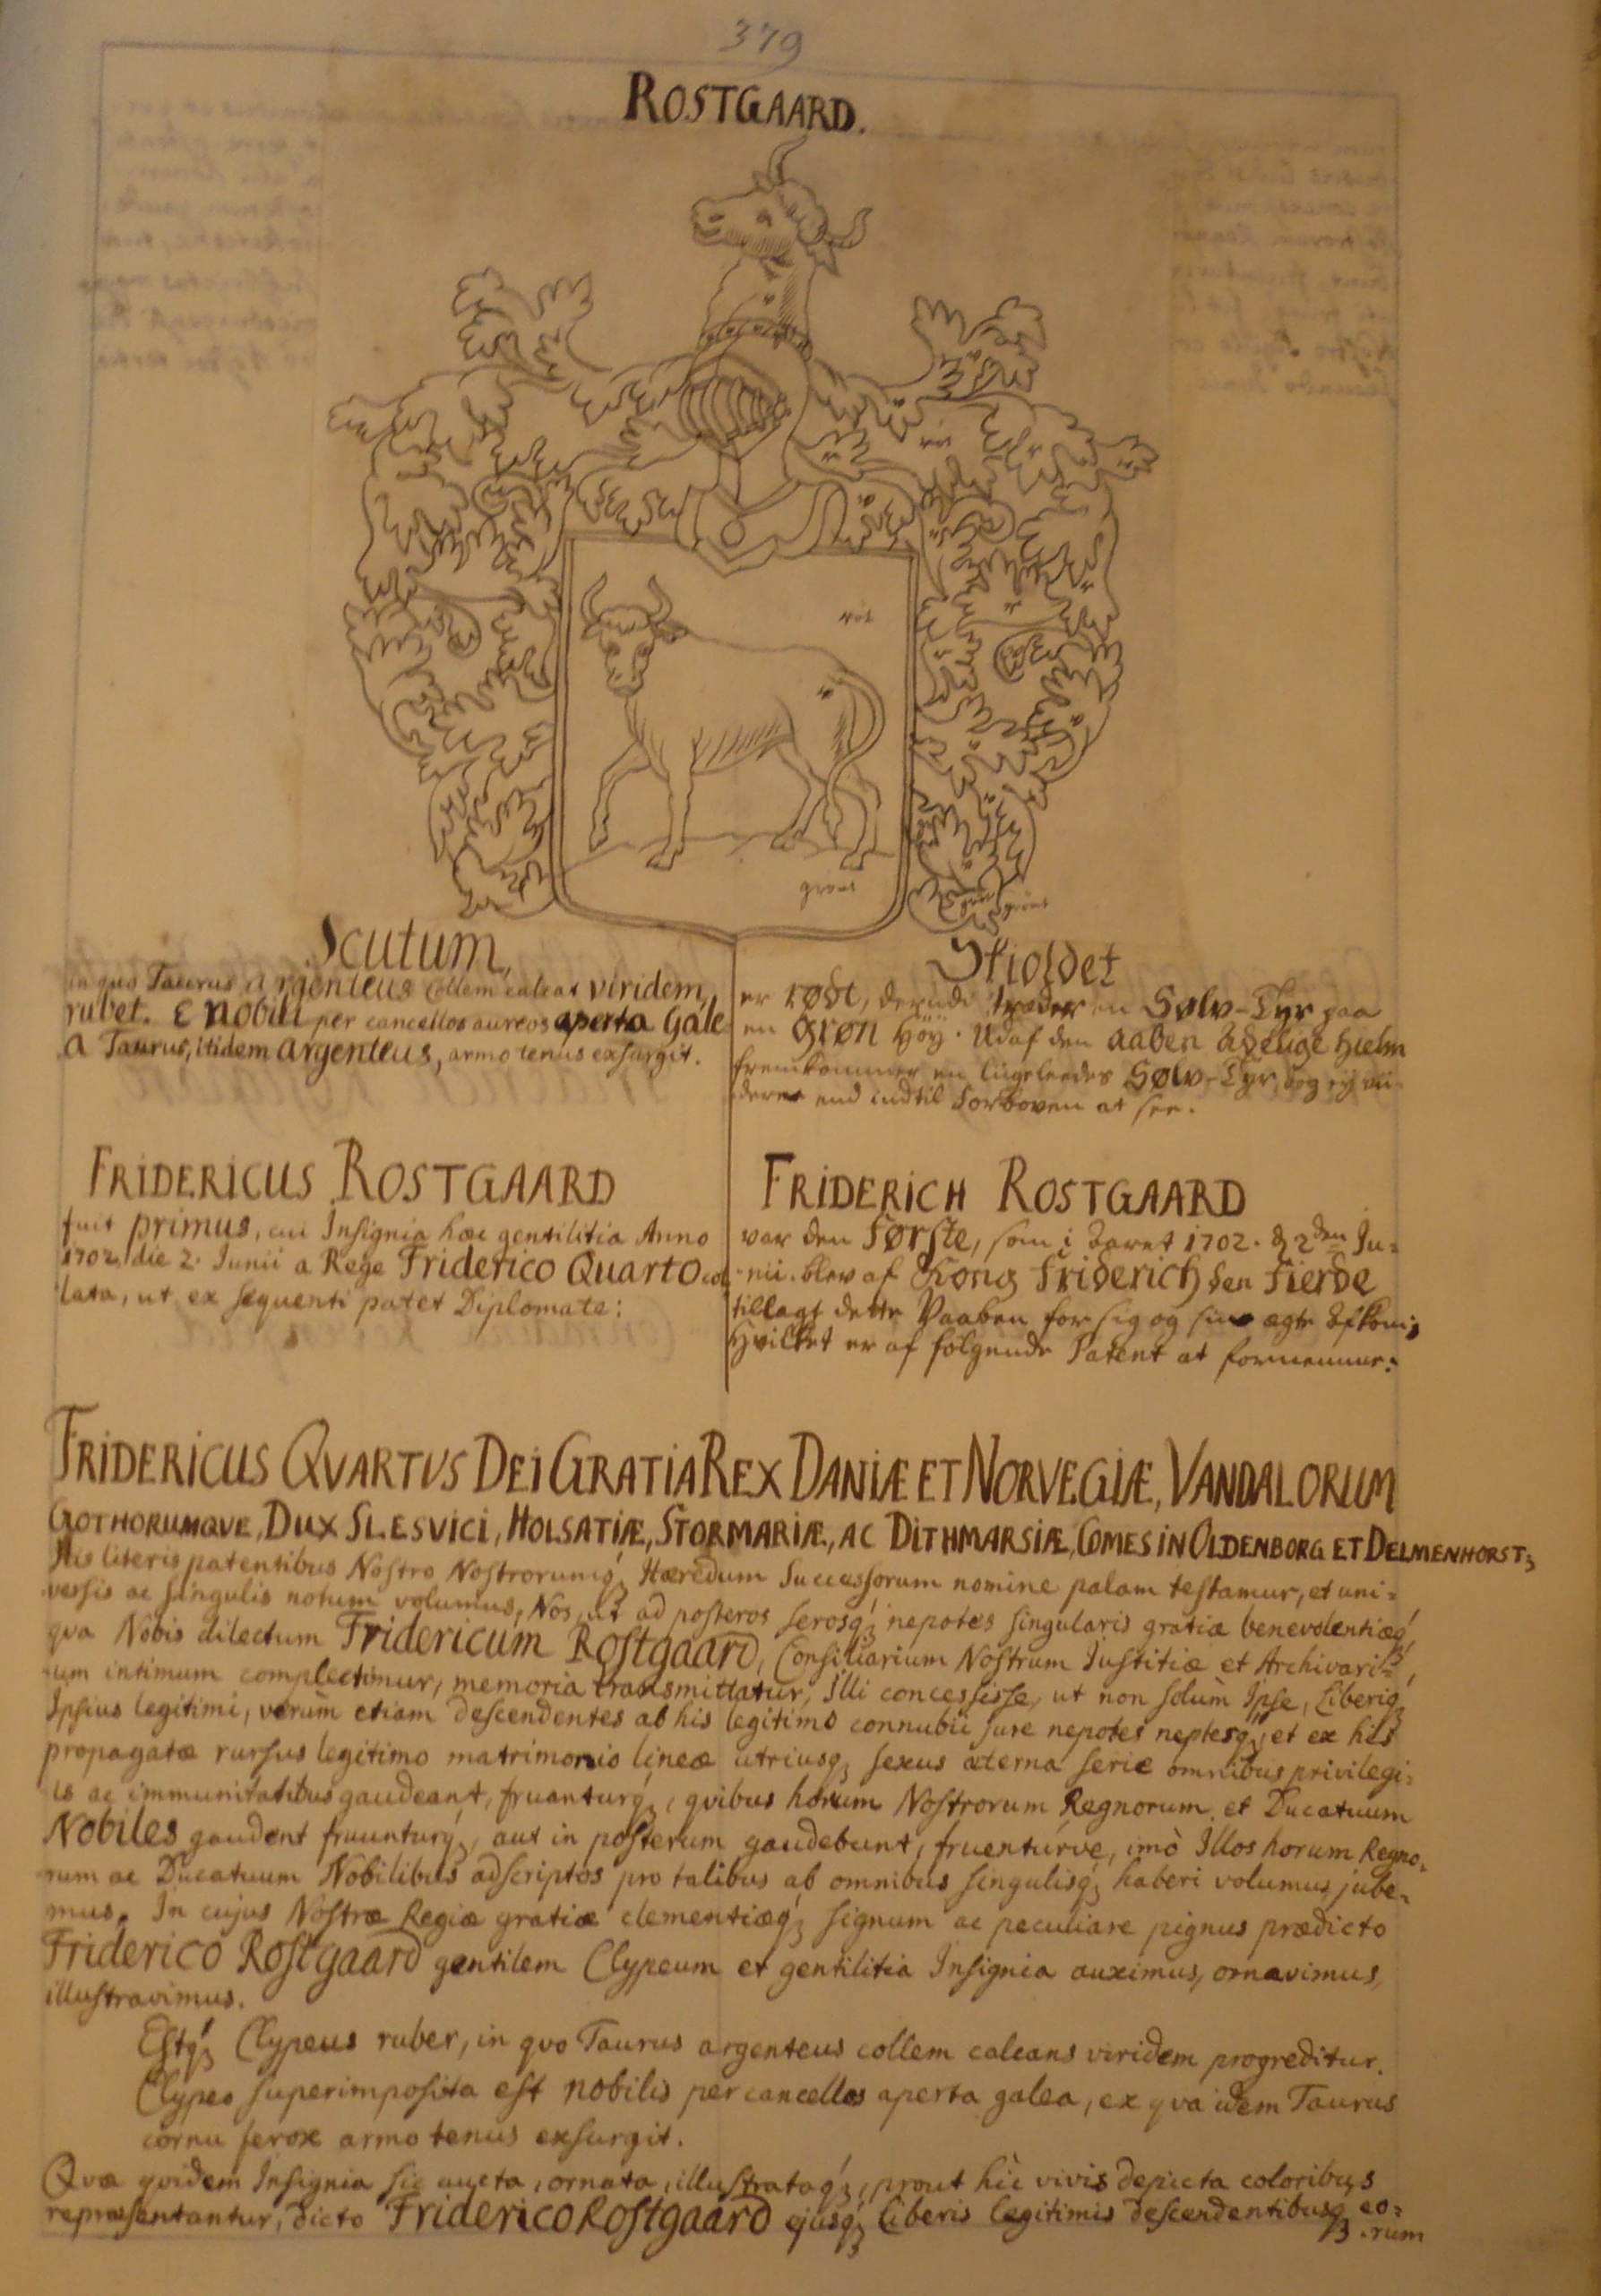 379
ROSTGAARD.
röt
grönt
grönt
Scutum,
in quo Taurus argenteus collem calcat viridem,
rubet. E nobili per cancellos aureos aperta Gale-
a Taurus, itidem argenteus, armo tenus exsurgit.
Skioldet
er rødt, derudi træder en Sølv-Tyr paa
en grøn Höÿ. Udaf den aaben Adelige Hielm
fremkommer en ligeleedes Sølv-Tyr, dog ej vii-
dere end indtil forboven at see.
FRIDERICUS ROSTGAARD
fuit primus, cui Insignia hæc gentilitia Anno
1702. die 2. Junii a Rege Friderico Quarto col-
lata, ut ex sequenti patet Diplomate:
FRIDERICH ROSTGAARD
var den Første, som i Aaret 1702. d. 2den Ju-
nii. blev af Kong Friderich den Fierde
tillagt dette Vaaben for sig og sine ægte Afkom;
Hvilket er af følgende Patent at fornemme:
FRIDERICUS QVARTVS DEI GRATIA REX DANIÆ ET NORVEGIÆ, VANDALORUM
GOTHORUMQVE, DUX SLESVICI, HOLSATIÆ, STORMARIÆ, AC DITHMARSIÆ, COMES IN OLDENBORG ET DELMENHORST;
His literis patentibus Nostro Nostrorumq; Hæredum Successorum nomine palam testamur, et uni-
versis ac singulis notum volumus, Nos, ut ad posteros serosq; nepotes singularis gratiæ benevolentiæq;
qva Nobis dilectum Fridericum Rostgaard, Consiliarium Nostrum Justitiæ et Archivari-
um intimum complectimur, memoria transmittatur, Illi concessisse, ut non solùm Ipse, Liberiq;
Ipsius legitimi, verùm etiam descendentes ab his legitimo connubii jure nepotes neptesq; et ex his
propagatæ rursus legitimo matrimonio lineæ utriusq; sexus æterna serie omnibus privilegi-
is ac immunitatibus gaudeant, fruanturq;, qvibus horum Nostrorum Regnorum et Ducatuum
Nobiles gaudent fruunturq;, aut in posterum gaudebunt, fruenturve, imò Illos horum Regno-
rum ac Ducatuum Nobilibus adscriptos pro talibus ab omnibus singulisq; haberi volumus, jube-
mus. In cujus Nostræ Regiæ gratiæ clementiæq; signum ac peculiare pignus prædicto
Friderico Rostgaard gentilem Clypeum et gentilitia Insignia auximus, ornavimus,
illustravimus.
Estq; Clypeus ruber, in qvo Taurus argenteus collem calcans viridem progreditur.
Clypeo superimposita est nobilis per cancellos aperta galea, ex qva idem Taurus
cornu ferox armo tenus exsurgit.
Qvæ qvidem Insignia sic aucta, ornata, illustrataq;, prout hìc vivis depicta coloribus
repræsentantur, dicto Friderico Rostgaard ejusq; Liberis legitimis descendentibusq; eo-
rum